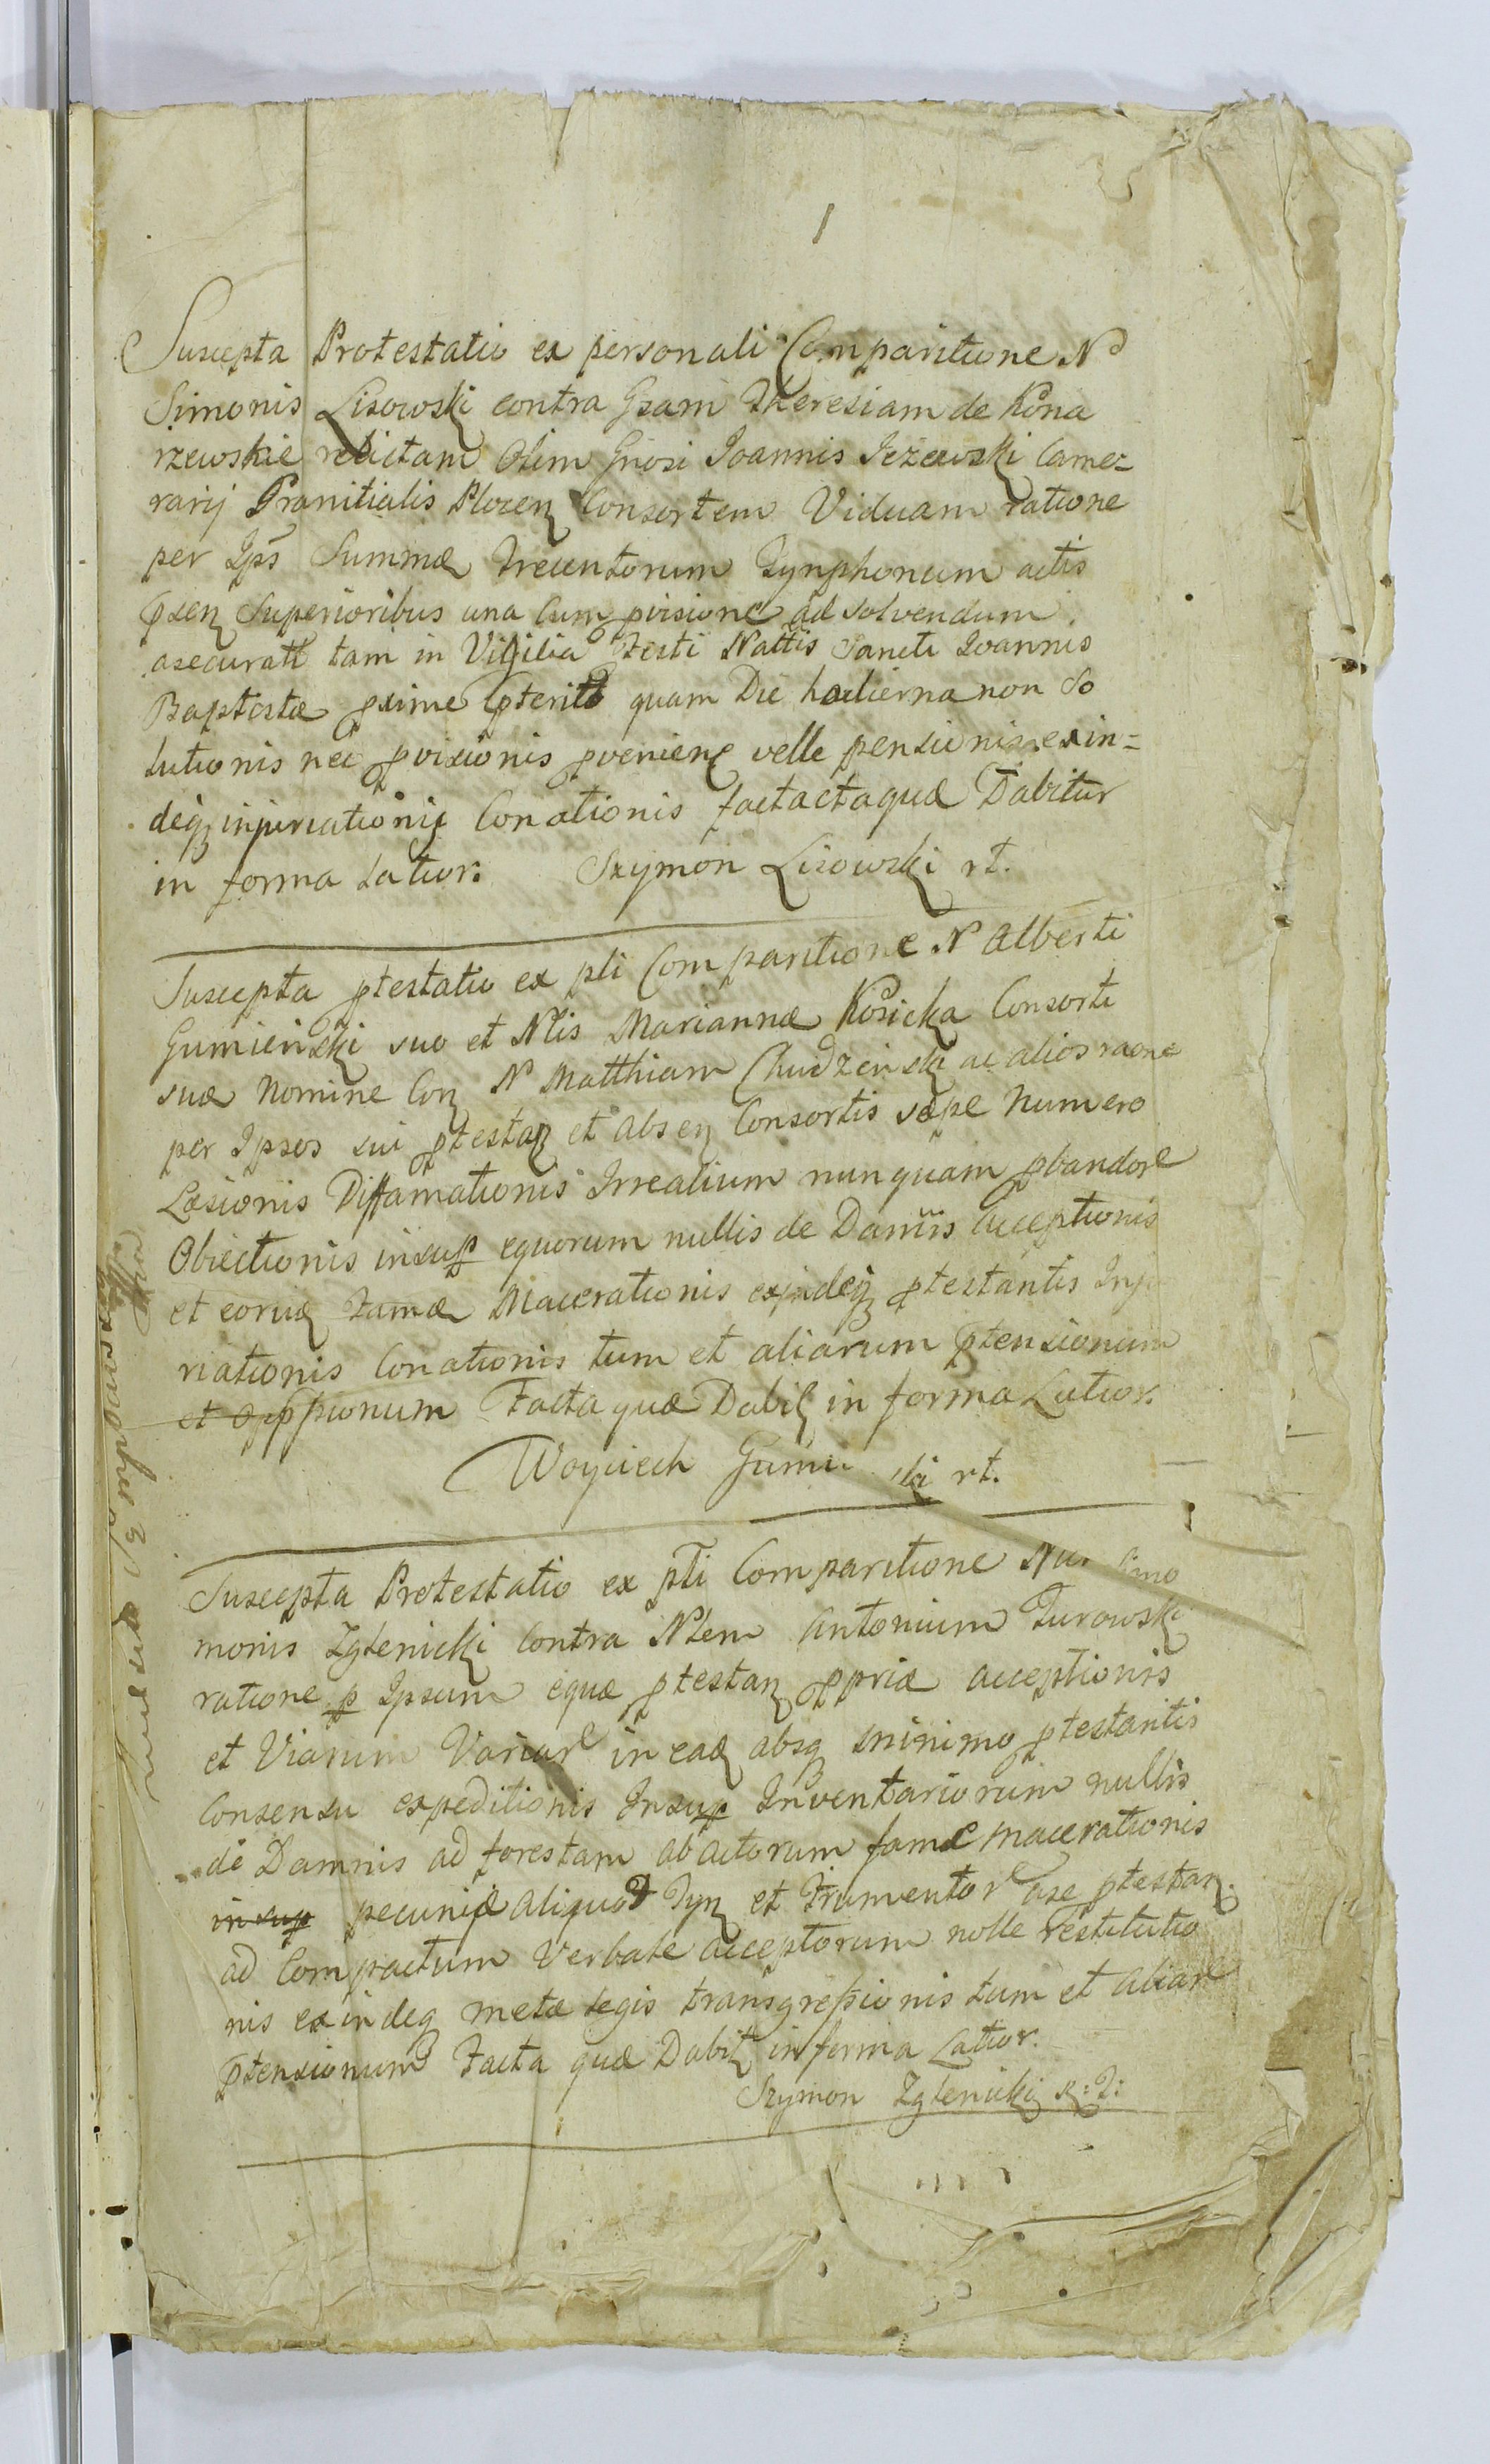 1
Suscepta Protestatio ex personali Comparitione N
Simonis Lisowski contra Gsam Theresiam de Kona
rzewskie relictam Olim Gnosi Joannis Jeżewski Came=
rarij Granitialis Plocen Consortem Viduam ratione
per Ips Summæ Trecentorum Tynphonum actis
pxen Superioribus una Cum pvisione ad solvendum
asecuratt tam in Vigilia Festi Nattis Sancti Joannis
Baptistæ pxime pterit quam Die hodierna non So
lutionis nec pvisionis pvenienc velle pensionis exin=
deq injuriationis Conationis factactaquæ Dabitur
in forma Latior: Szymon Lisowski rt.
Suscepta ptestatio ex pli Comparitione N Alberti
Gumienski suo et Nlis Mariannæ Kosicka Consorti
suæ Nomine Con N Matthiam Chudzinski ac alios raone
per Ipsos sui ptestan et absen Consortis sæpe Numero
Læsionis Diffamationis Irrealium nunquam pbandor
Obiectionis insup equorum nullis de Damis acceptionis
et eorū Famæ Macerationis exindeq ptestantis Inju
riationis Conationis tum et aliarum ptensionum
Facta quæ Dabit in forma Latior.
Woyciech Gumi ski rt.
Suscepta Protestatio ex pli Comparitione
monis Zglenicki Contra Nlem Antonium Turowski
ratione p Ipsum equæ ptestan ppriæ acceptionis
et Viarum Variar in eaδ absq minimo ptestantis
Consensu expeditionis Insup Inventariorum nullis
de Damnis ad forestam abactorum famæ macerationis
insup pecuniæ aliquot Tyn et Frumentor ptestan
ad Compactum Verbale acceptorum nolle restitutio
nis exindeq metæ legis transgressionis tum et aliar
ptensionum Facta quæ Dabit in forma Latior.
Szymon Zglenicki